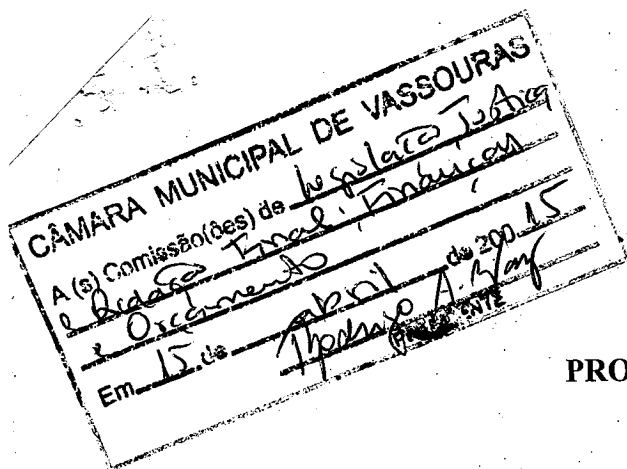 CÂMARA MUNICIPAL DE VASSOURAS
A (s) Comissão(ões) de Legislação Justiça
e Redação Final; Finanças
e Orçamento
Em 15 de abril de 200 15
PRESIDENTE
PRO